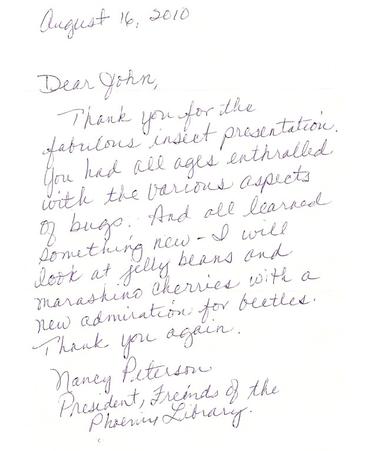 August 16, 2010
Dear John,
Thank you for the
fabulous insect presentation.
You had all ages enthralled
with the various aspects
of bugs. And all learned
something new - I will
look at jelly beans and
marashino cherries with a
new admiration for beetles.
Thank you again.
Nancy Peterson
President, Freinds of the
Phoenix Library.